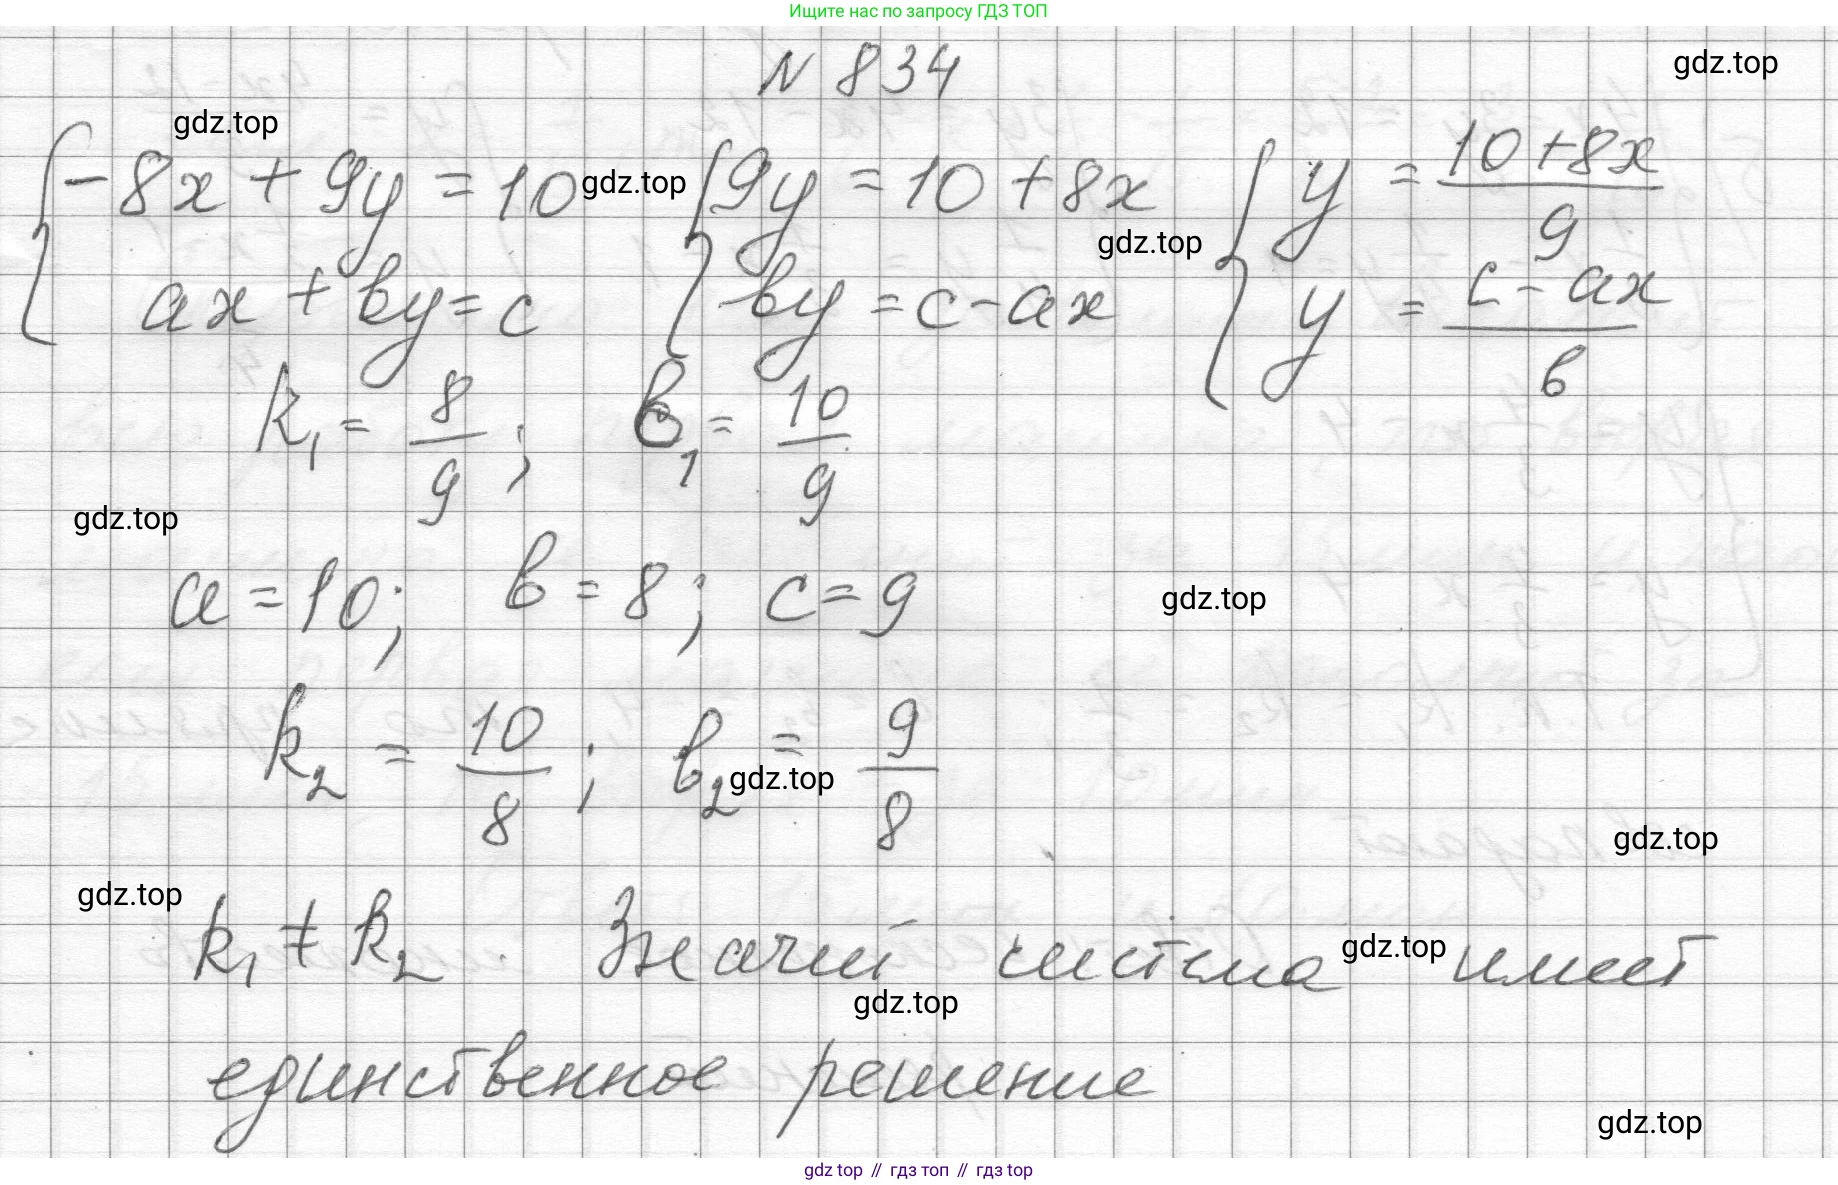 Ищите нас по запросу ГДЗ ТОП
N 834
gdz.top
gdz.top
{ -8x + 9y = 10 gdz.top { 9y = 10 + 8x { y = (10+8x)/9
gdz.top
ax + by = c -by = c - ax y = (c - ax)/b
k₁ = 8/9 ; b₁ = 10/9
gdz.top
a = 10; b = 8; c = 9
gdz.top
k₂ = 10/8 ; b₂ = 9/8
gdz.top
gdz.top
gdz.top
k₁ ≠ k₂ Значит система gdz.top имеет
gdz.top
единственное решение
gdz.top
gdz top // гдз топ // гдз top